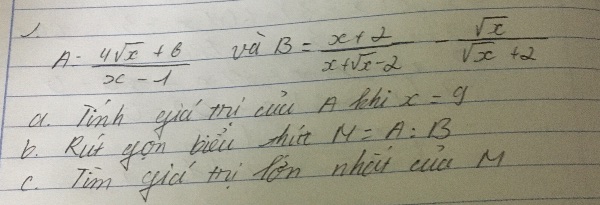 1.
A = (4√x + 6)/(x - 1) và B = (x + 2)/(x + √x - 2) - √x/(√x + 2)
a. Tính giá trị của A khi x = 9
b. Rút gọn biểu thức M = A : B
c. Tìm giá trị lớn nhất của M